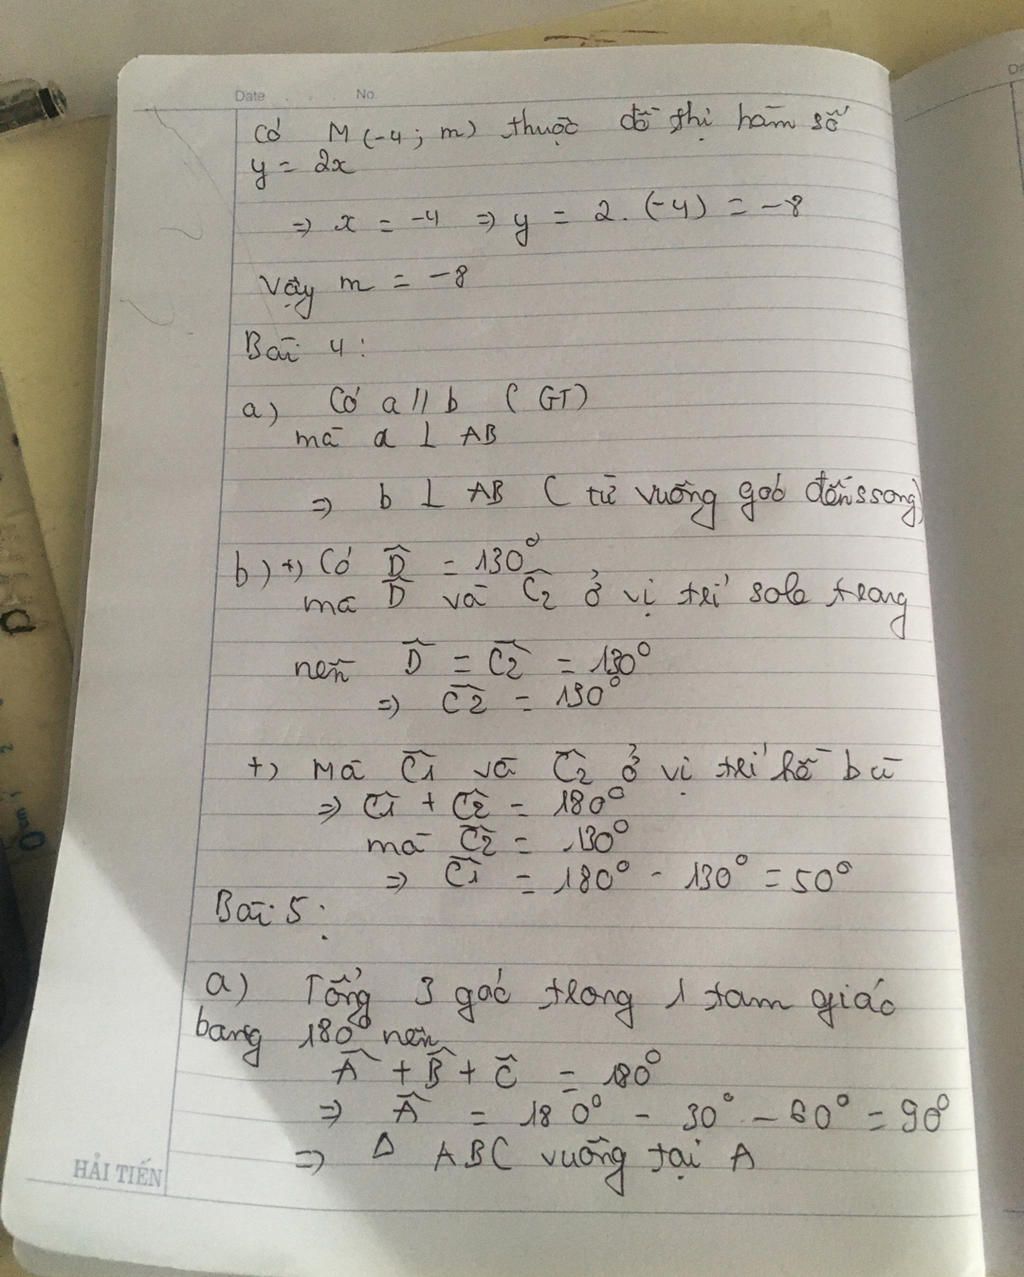 Date No.
Có M(-4; m) thuộc đồ thị hàm số
y = 2x
⇒ x = -4 ⇒ y = 2. (-4) = -8
Vậy m = -8
Bài 4:
a) Có a // b (GT)
mà a ⊥ AB
⇒ b ⊥ AB (từ vuông góc đến s song)
b) +) Có D̂ = 130°
mà D̂ và Ĉ2 ở vị trí sole trong
nên D̂ = Ĉ2 = 130°
⇒ Ĉ2 = 130°
+) Mà Ĉ1 và Ĉ2 ở vị trí kề bù
⇒ Ĉ1 + Ĉ2 = 180°
mà Ĉ2 = 130°
⇒ Ĉ1 = 180° - 130° = 50°
Bài 5:
a) Tổng 3 góc trong 1 tam giác
bang 180° nên
Â + B̂ + Ĉ = 180°
⇒ Â = 180° - 30° - 60° = 90°
⇒ Δ ABC vuông tại A
HẢI TIẾN